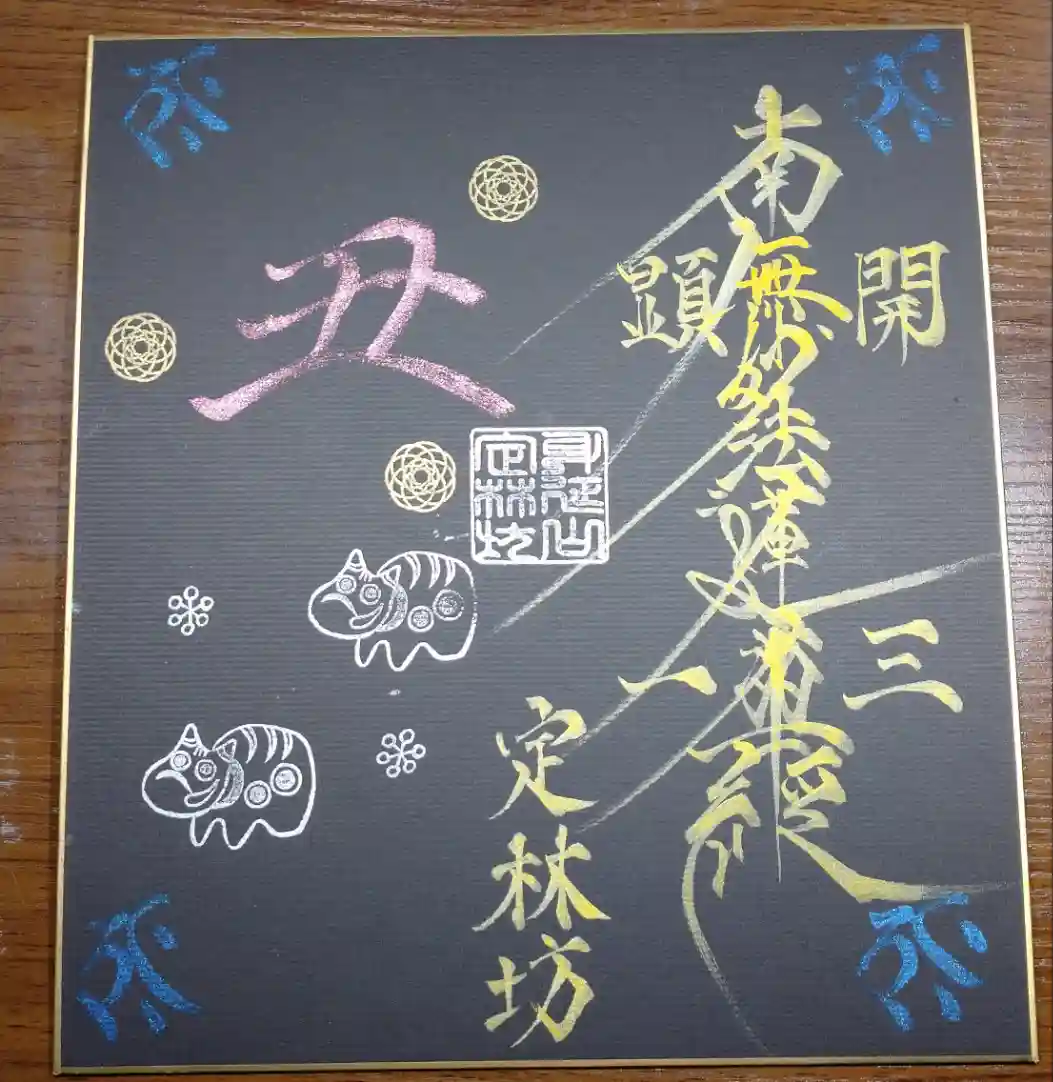 南無妙法蓮華経
開顕
三一
丑
身延山
定林坊
定林坊